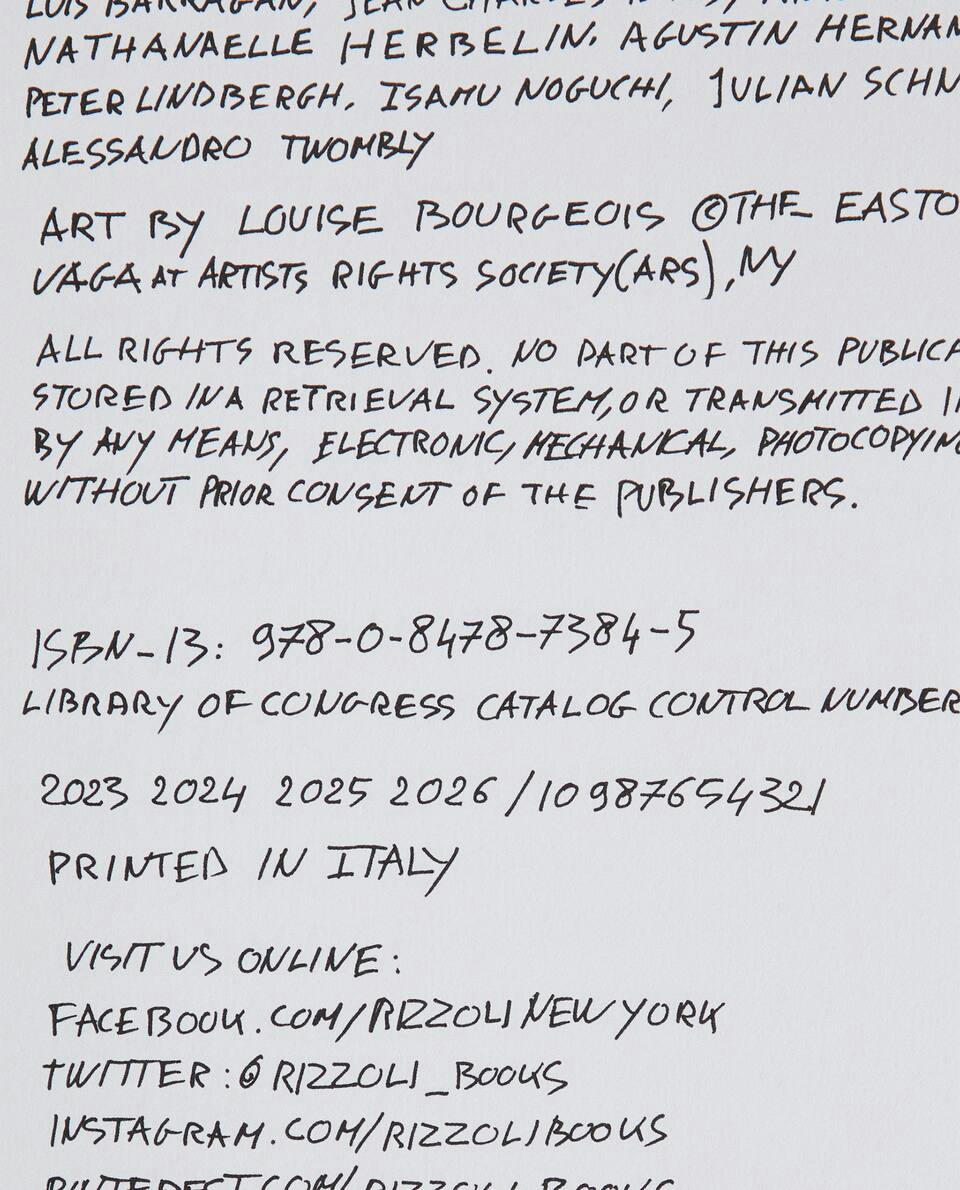 LUIS BARRAGAN, JEAN CHARLES
NATHANAELLE HERBELIN, AGUSTIN HERNAN
PETER LINDBERGH, ISAMU NOGUCHI, JULIAN SCHN
ALESSANDRO TWOMBLY
ART BY LOUISE BOURGEOIS ©THE EASTO
VAGA AT ARTISTS RIGHTS SOCIETY(ARS), NY
ALL RIGHTS RESERVED. NO PART OF THIS PUBLICA
STORED IN A RETRIEVAL SYSTEM, OR TRANSMITTED I
BY ANY MEANS, ELECTRONIC, MECHANICAL, PHOTOCOPYING
WITHOUT PRIOR CONSENT OF THE PUBLISHERS.
ISBN-13: 978-0-8478-7384-5
LIBRARY OF CONGRESS CATALOG CONTROL NUMBER
2023 2024 2025 2026 / 10 9 8 7 6 5 4 3 2 1
PRINTED IN ITALY
VISIT US ONLINE:
FACEBOOK.COM/RIZZOLINEWYORK
TWITTER: @RIZZOLI_BOOKS
INSTAGRAM.COM/RIZZOLIBOOKS
PINTEREST.COM/RIZZOLIBOOKS